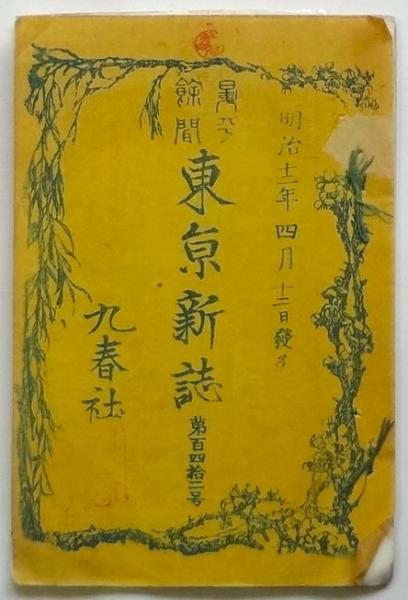 明治十一年四月十二日發兌
東京新誌
第百四拾二号
九春社